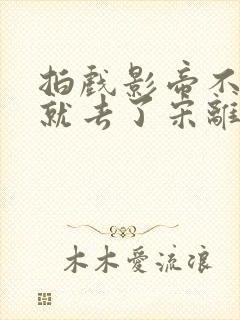 拍戲影帝不
就去了宋離
木木愛流浪